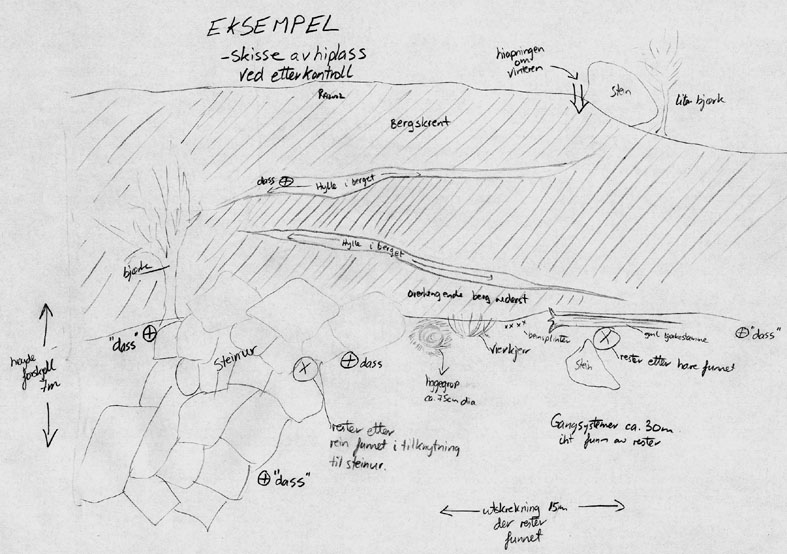 EKSEMPEL
-Skisse av hiplass
ved etterkontroll
hiåpningen
om
vinteren
Stein
liten bjørk
Bergskrent
dass
Hylle i berget
Hylle i berget
bjørk
Overhengende berg nederst
høyde
forskjell
7m
"dass"
Steinur
dass
xxxx beinsplinter
vierkjerr
liggegrop
ca. 75cm dia
Stein
gml bjørkestamme
"dass"
rester etter hare funnet
X
X
rester etter
rein funnet i tilknytning
til steinur.
"dass"
Gangsystemer ca. 30m
iht funn av rester
utstrekning 15m
der rester
funnet